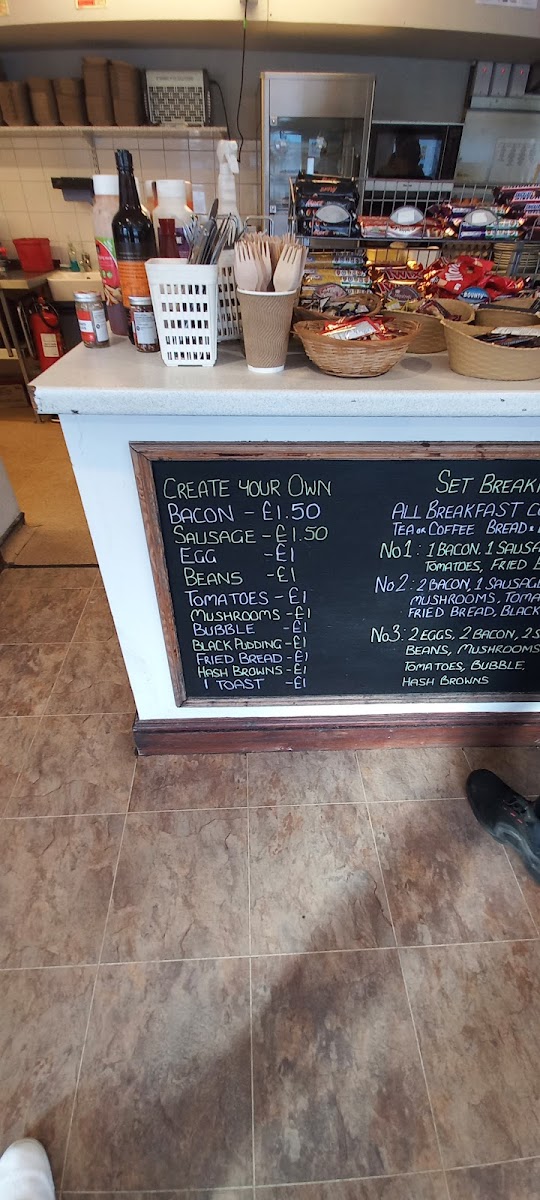 TWIX
BOUNTY
CREATE YOUR OWN
BACON - £1.50
SAUSAGE - £1.50
EGG - £1
BEANS - £1
TOMATOES - £1
MUSHROOMS - £1
BUBBLE - £1
BLACK PUDDING - £1
FRIED BREAD - £1
HASH BROWNS - £1
1 TOAST - £1
SET
ALL BREAKFAST
TEA OR COFFEE BREAD
No1: 1 BACON. 1
TOMATOES, FRIED
No2: 2 BACON, 1 SAUSAGE
MUSHROOMS,
FRIED BREAD, BLACK
No3: 2 EGGS, 2 BACON, 2
BEANS, MUSHROOMS
TOMATOES, BUBBLE,
HASH BROWNS